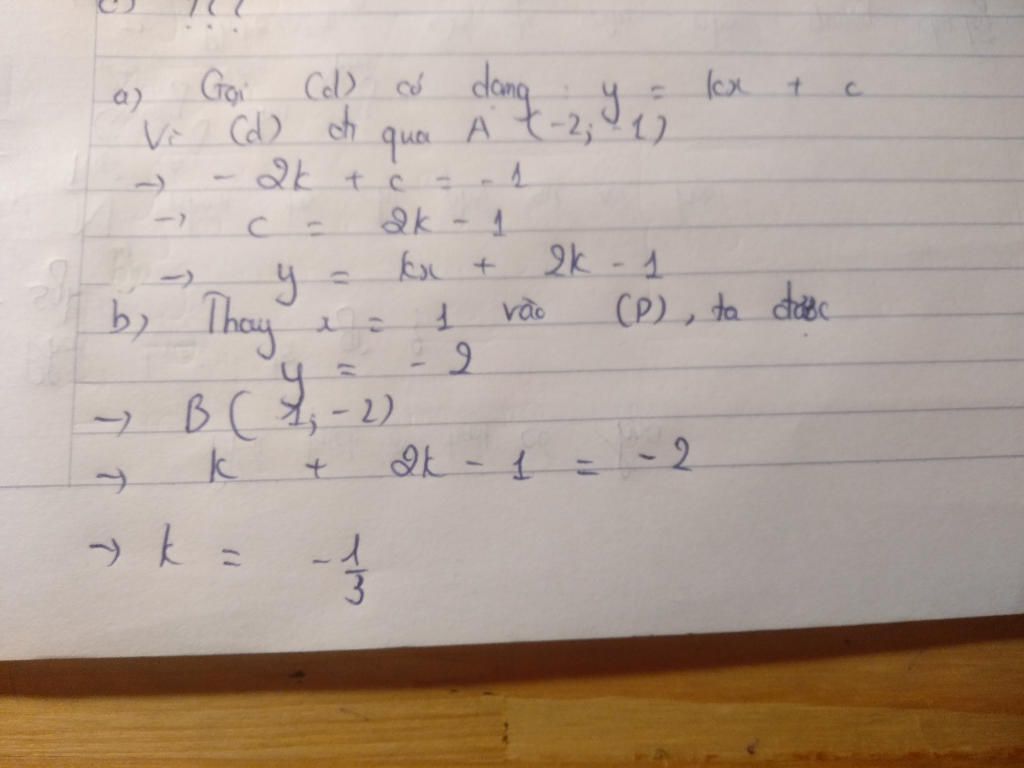 c) ???
a) Gọi (d) có dạng : y = kx + c
Vì (d) đi qua A (-2; -1)
→ - 2k + c = -1
→ c = 2k - 1
→ y = kx + 2k - 1
b) Thay x = 1 vào (P), ta được
y = - 2
→ B ( 1; -2)
→ k + 2k - 1 = - 2
→ k = - 1/3